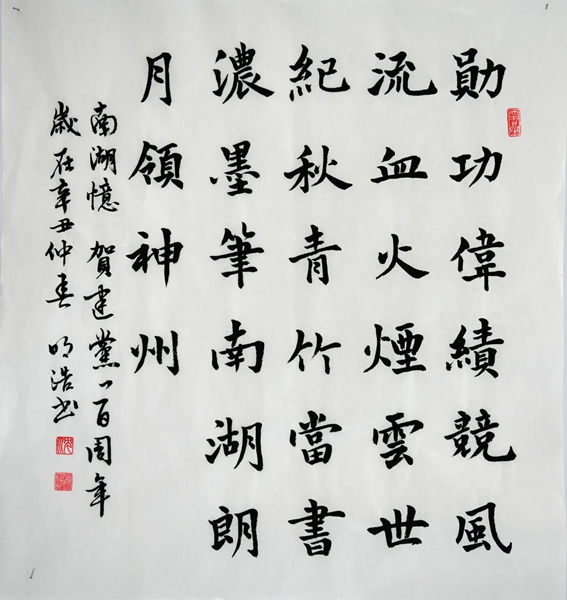 勛功偉績競風
流血火煙雲世
紀秋青竹當書
濃墨筆南湖朗
月領神州
南湖憶 賀建黨一百周年
歲在辛丑仲春 明浩书